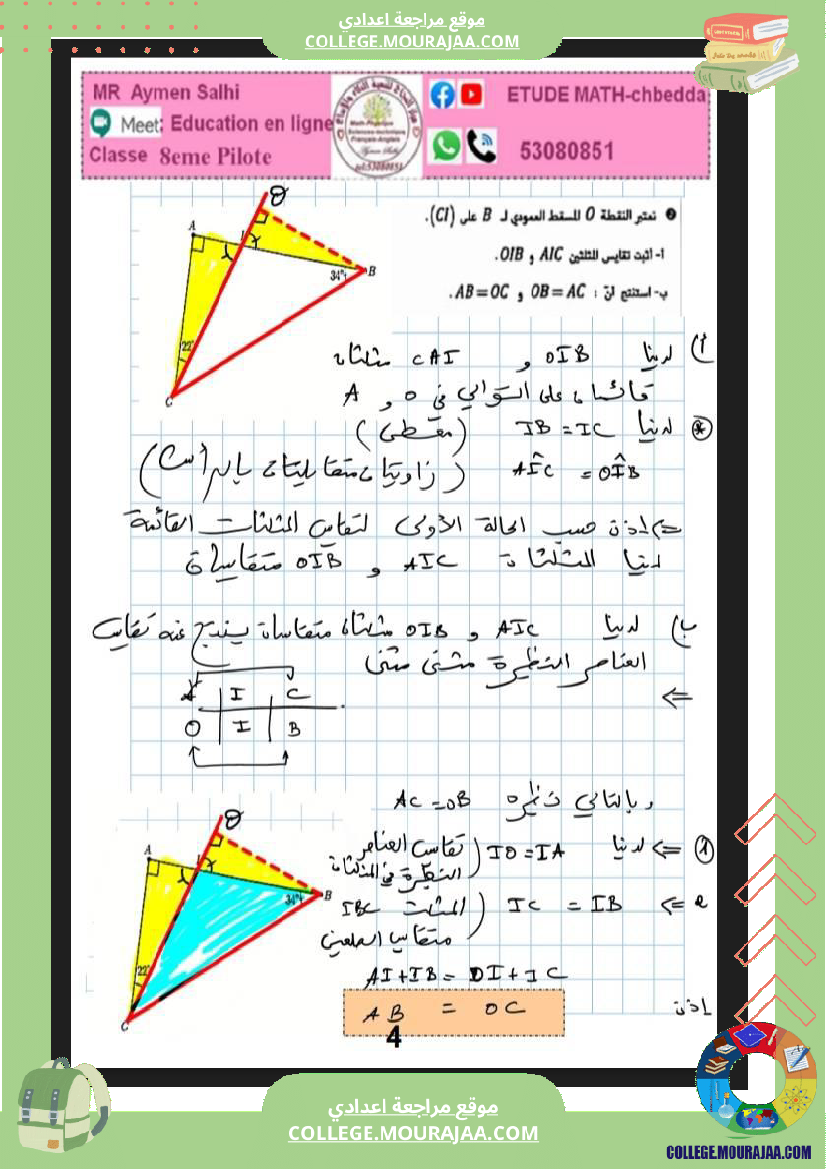 موقع مراجعة اعدادي
COLLEGE.MOURAJAA.COM
MR Aymen Salhi
Meet: Education en ligne
Classe 8eme Pilote
ETUDE MATH-chbedda
53080851
❷ نعتبر النقطة O المسقط العمودي لـ B على (CI).
أ- أثبت تقايس المثلثين AIC و OIB.
ب- استنتج أنّ : OB = AC و AB = OC.
A
O
I
B
34°
22°
C
أ) لدينا OIB و CAI مثلثان
قائمان على التوالي في O و A
* لدينا IB = IC (معطى)
AÎC = OÎB (زاويتان متقابلتان بالرأس)
=> إذن حسب الحالة الأولى لتقايس المثلثات القائمة
لدينا المثلثان AIC و OIB متقايسان
ب) لدينا AIC و OIB مثلثان متقايسان ينتج عنه تقايس
العناصر النظيرة مثنى مثنى
<=
A I C
O I B
وبالتالي نظيره AC = OB
① <= لدينا IO = IA (تقايس العناصر
النظيرة في المثلثان
2 <= IC = IB (المثلث IBC
متقايس الضلعين
AI + IB = OI + IC
إذن AB = OC
A
O
I
B
34°
22°
C
4
موقع مراجعة اعدادي
COLLEGE.MOURAJAA.COM
COLLEGE.MOURAJAA.COM